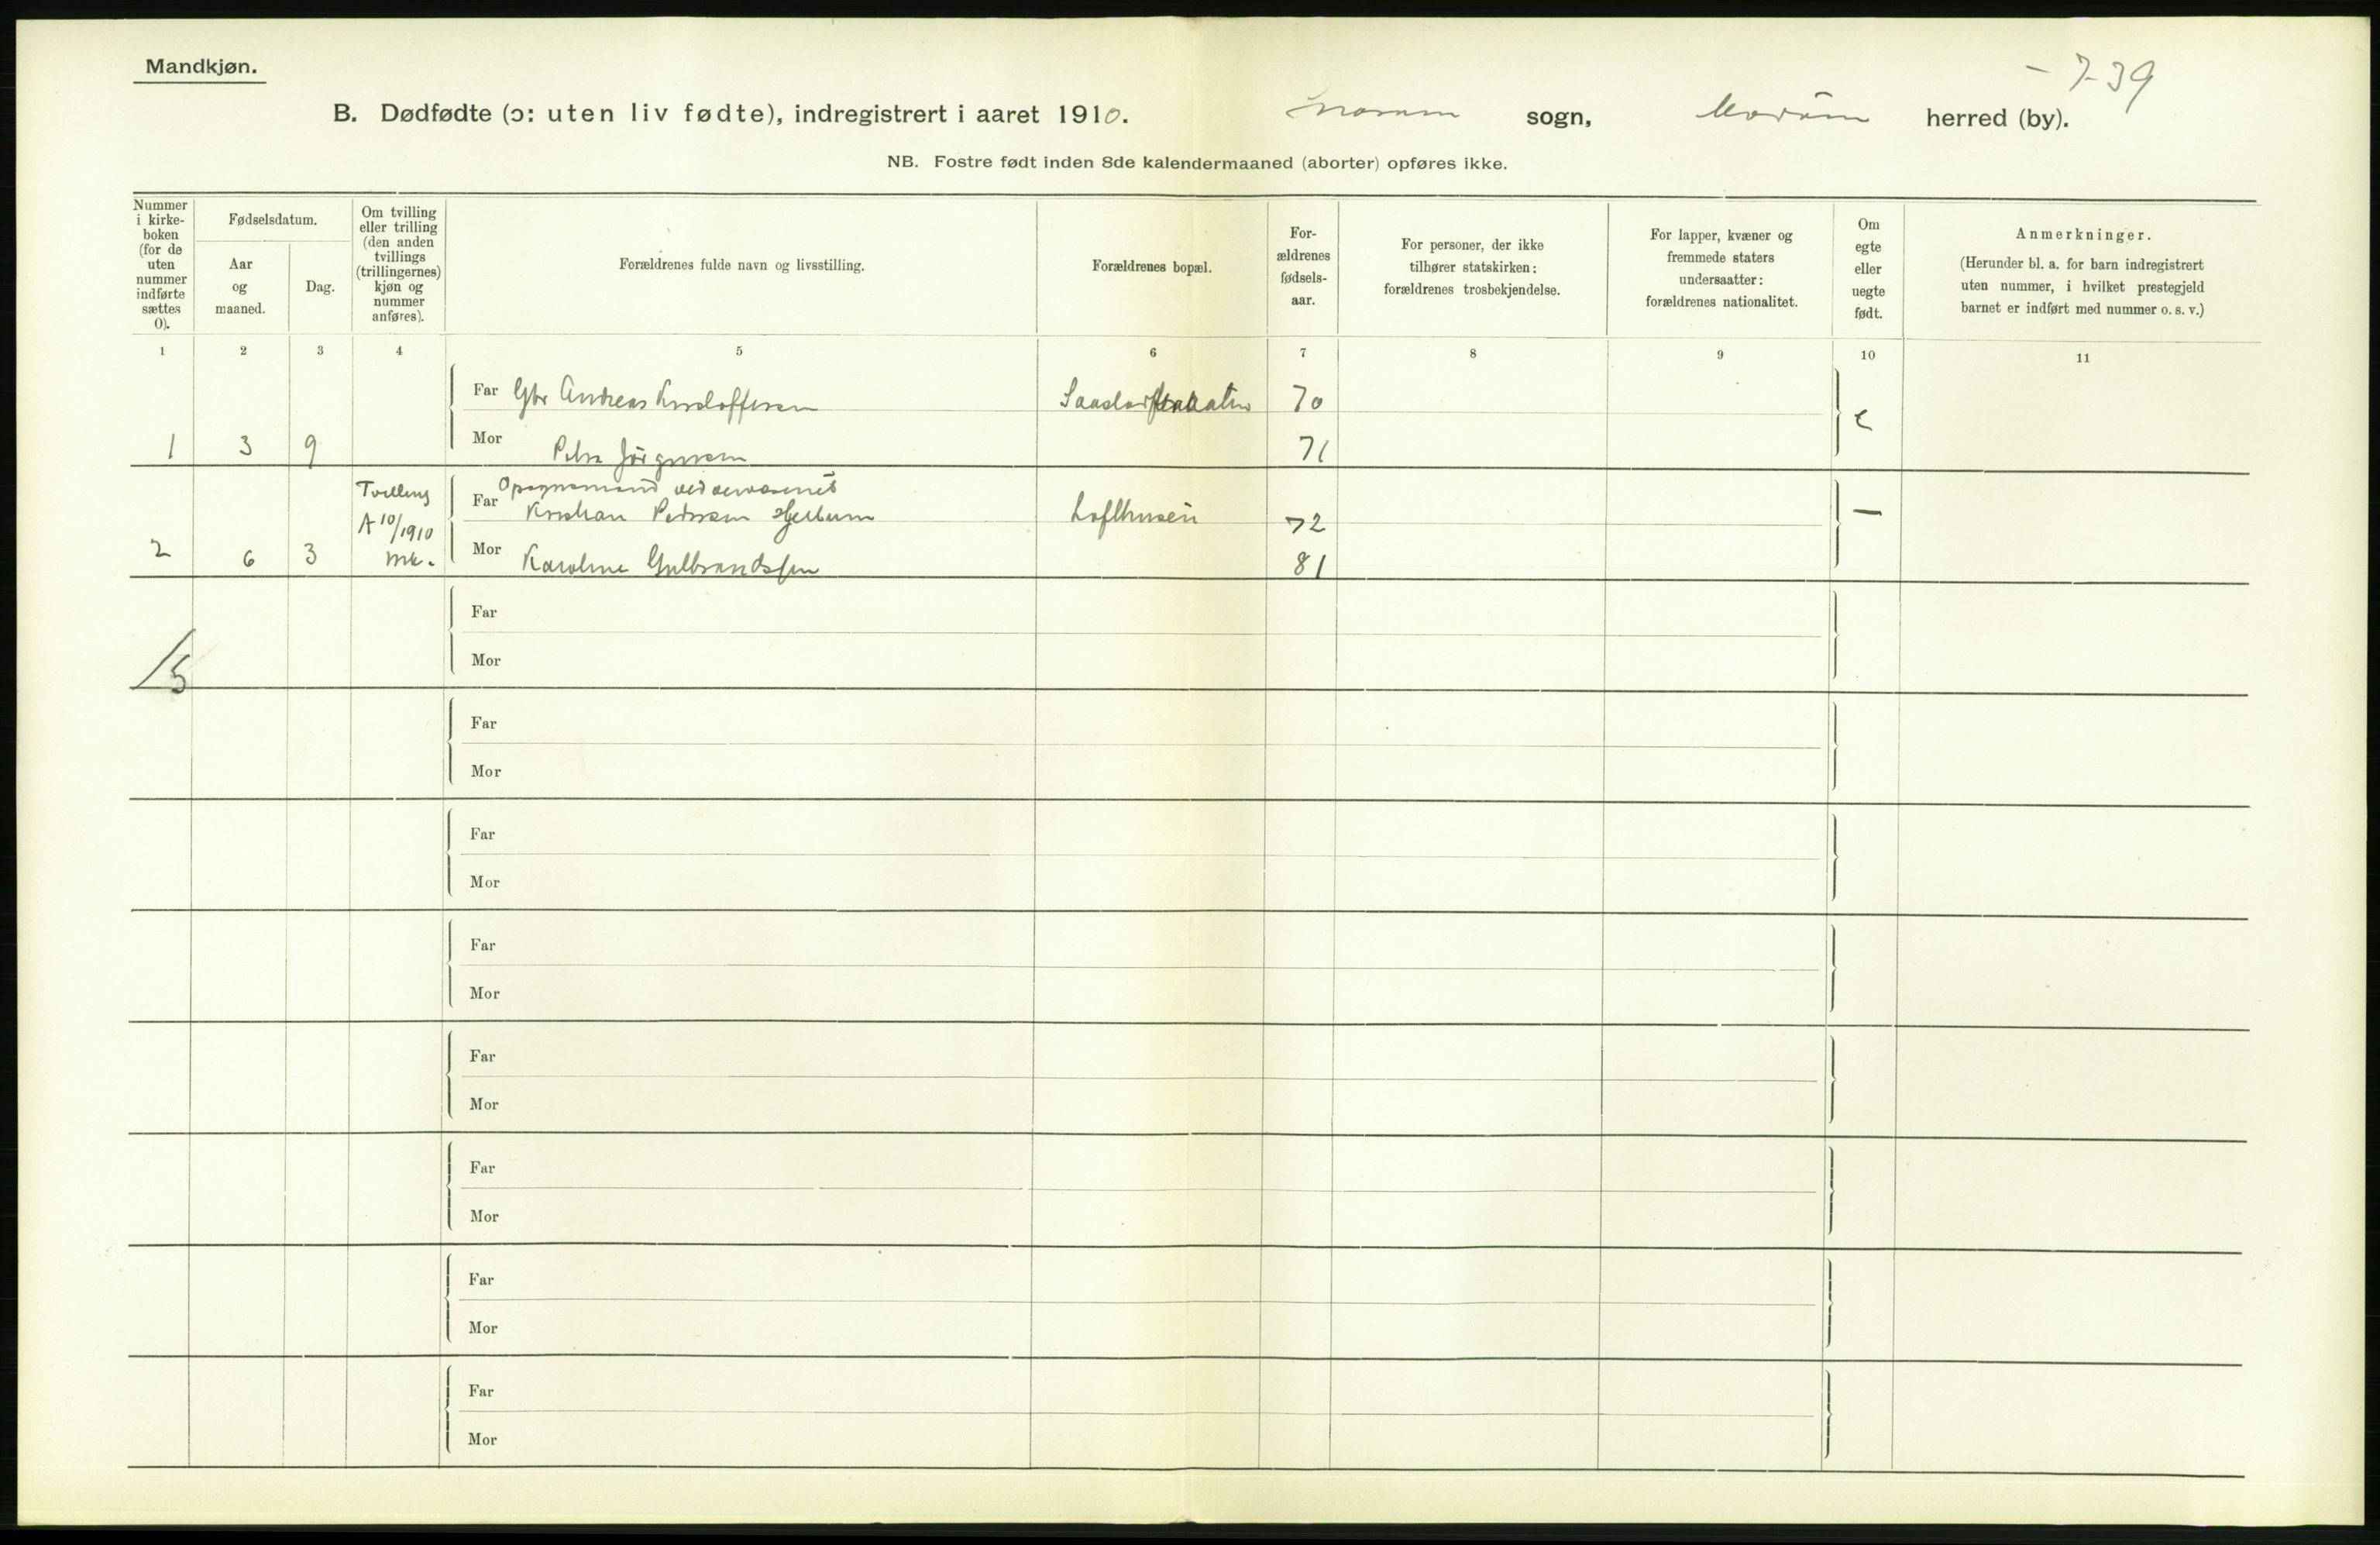 Mandkjøn.
- 7-39
B. Dødfødte (ɔ: uten liv fødte), indregistrert i aaret 1910. sogn, Modum herred (by).
NB. Fostre født inden 8de kalendermaaned (aborter) opføres ikke.
Nummer i kirke- boken (for de uten nummer indførte sættes 0).
Fødselsdatum.
Aar og maaned.
Dag.
Om tvilling eller trilling (den anden tvillings (trillingernes) kjøn og nummer anføres).
Forældrenes fulde navn og livsstilling.
Forældrenes bopæl.
For- ældrenes fødsels- aar.
For personer, der ikke tilhører statskirken: forældrenes trosbekjendelse.
For lapper, kvæner og fremmede staters undersaatter: forældrenes nationalitet.
Om egte eller uegte født.
Anmerkninger.
(Herunder bl. a. for barn indregistrert uten nummer, i hvilket prestegjeld barnet er indført med nummer o. s. v.)
1 2 3 4 5 6 7 8 9 10 11
Far Gbr Andreas Kristoffersen 70
1 3 9 Mor Petra Jörgensen 71 e
Tvilling Opsynsmand
A 10/1910 Far Kristian Pedersen Lofthusein 72 —
2 6 3 mk. Mor Karoline Gulbrandsen 81
Far
Mor
15
Far
Mor
Far
Mor
Far
Mor
Far
Mor
Far
Mor
Far
Mor
Far
Mor